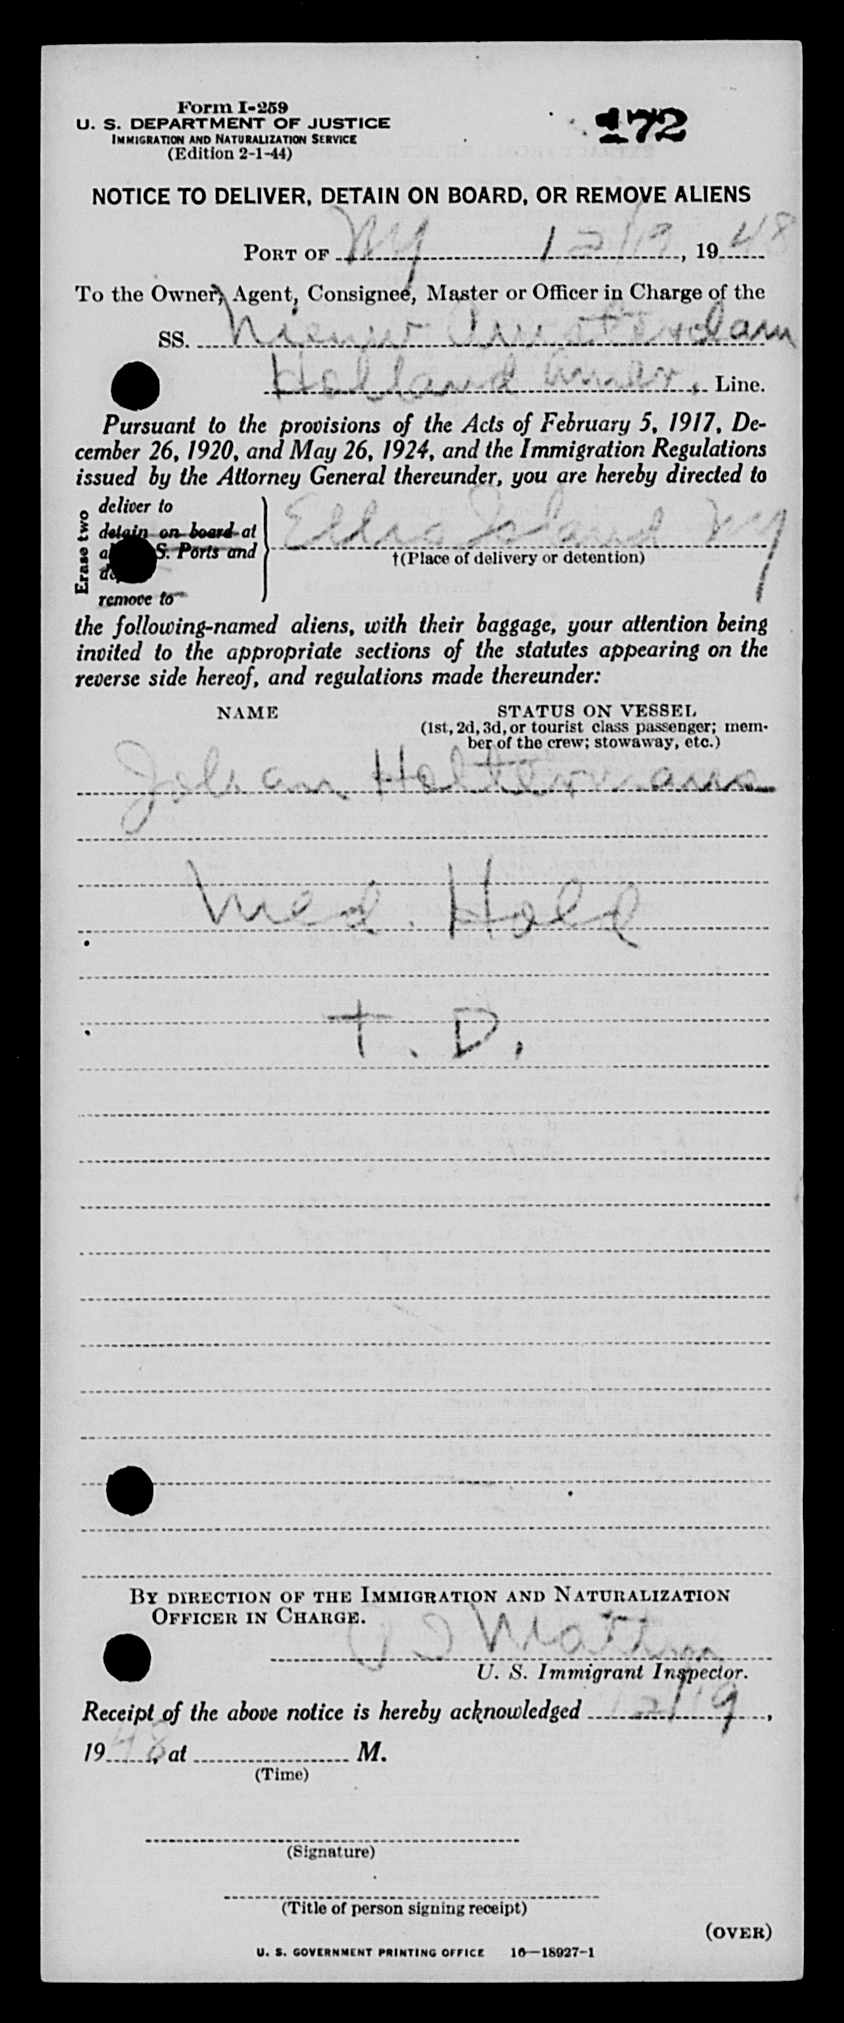 Form I-259
U. S. DEPARTMENT OF JUSTICE
IMMIGRATION AND NATURALIZATION SERVICE
(Edition 2-1-44)
172
NOTICE TO DELIVER, DETAIN ON BOARD, OR REMOVE ALIENS
PORT OF NY 12/19, 1948
To the Owner, Agent, Consignee, Master or Officer in Charge of the
SS. Nieuw Amsterdam
Holland Amer., Line.
Pursuant to the provisions of the Acts of February 5, 1917, De-
cember 26, 1920, and May 26, 1924, and the Immigration Regulations
issued by the Attorney General thereunder, you are hereby directed to
Erase two
deliver to
detain on board at
S. Ports and
remove to
Ellis Island NY
†(Place of delivery or detention)
the following-named aliens, with their baggage, your attention being
invited to the appropriate sections of the statutes appearing on the
reverse side hereof, and regulations made thereunder:
NAME STATUS ON VESSEL
(1st, 2d, 3d, or tourist class passenger; mem-
ber of the crew; stowaway, etc.)
Johan Holtermans
Med. Hold
T. D.
BY DIRECTION OF THE IMMIGRATION AND NATURALIZATION
OFFICER IN CHARGE.
U. S. Immigrant Inspector.
Receipt of the above notice is hereby acknowledged 12/19,
1948, at M.
(Time)
(Signature)
(Title of person signing receipt)
(OVER)
U. S. GOVERNMENT PRINTING OFFICE 16—18927-1